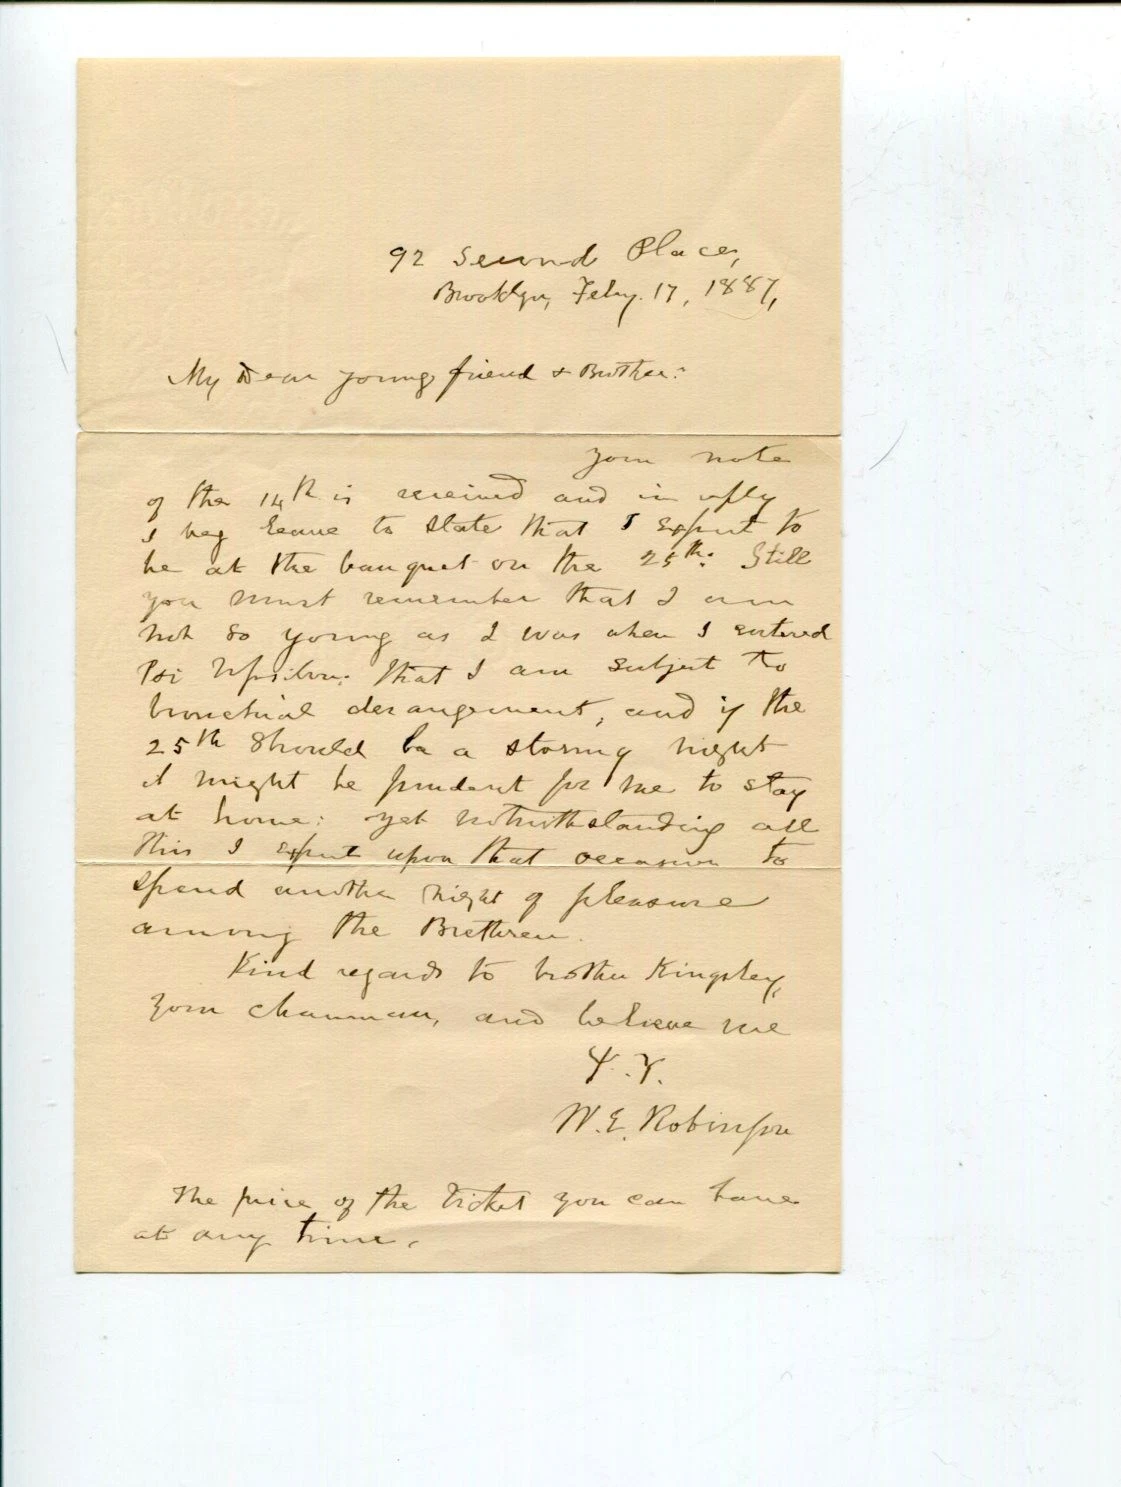 92 Second Place,
Brooklyn, Feby. 17, 1887,
My Dear young friend & Brother:
your note
of the 14th is received and in reply
I beg leave to state that I expect to
be at the banquet on the 25th. Still
you must remember that I am
not so young as I was when I entered
Psi Upsilon: that I am subject to
bronchial derangement, and if the
25th should be a stormy night
it might be prudent for me to stay
at home: yet notwithstanding all
this I expect upon that occasion to
spend another night of pleasure
among the Brethren.
Kind regards to brother Kingsley,
your chairman, and believe me
Ψ. Υ.
W. E. Robinson
The price of the ticket you can have
at any time.